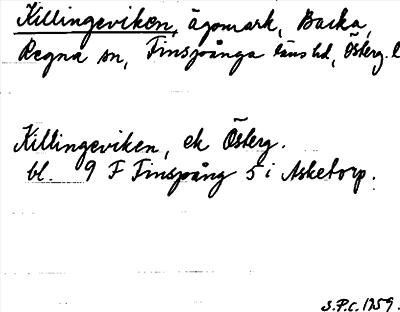 Killingeviken, ägomark, Backa,
Regna sn, Finspånga läns hd, Österg. l
Killingeviken, ek Österg.
bl. 9 F Finspång 5 i Asketorp.
S.P.C. 1959.